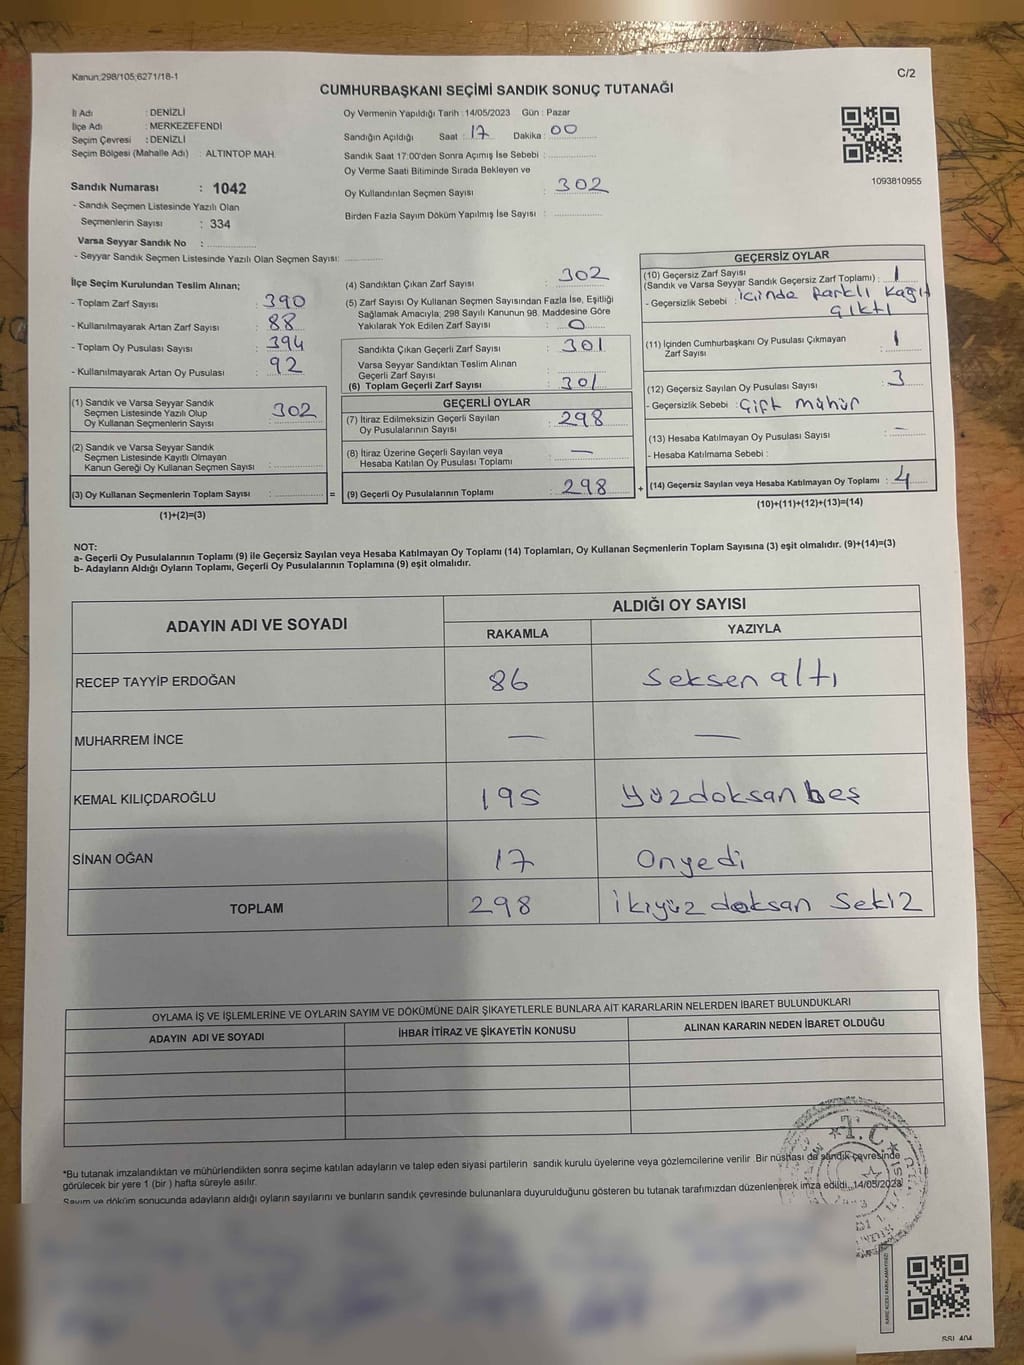 Kanun:298/105;6271/18-1
C/2
CUMHURBAŞKANI SEÇİMİ SANDIK SONUÇ TUTANAĞI
İl Adı : DENİZLİ
İlçe Adı : MERKEZEFENDİ
Seçim Çevresi : DENİZLİ
Seçim Bölgesi (Mahalle Adı) : ALTINTOP MAH.
Sandık Numarası : 1042
- Sandık Seçmen Listesinde Yazılı Olan
Seçmenlerin Sayısı : 334
Varsa Seyyar Sandık No :
- Seyyar Sandık Seçmen Listesinde Yazılı Olan Seçmen Sayısı:
Oy Vermenin Yapıldığı Tarih : 14/05/2023 Gün : Pazar
Sandığın Açıldığı Saat : 17 Dakika : 00
Sandık Saat 17:00'den Sonra Açımış İse Sebebi :
Oy Verme Saati Bitiminde Sırada Bekleyen ve
Oy Kullandırılan Seçmen Sayısı : 302
Birden Fazla Sayım Döküm Yapılmış İse Sayısı :
1093810955
İlçe Seçim Kurulundan Teslim Alınan;
- Toplam Zarf Sayısı : 390
- Kullanılmayarak Artan Zarf Sayısı : 88
- Toplam Oy Pusulası Sayısı : 394
- Kullanılmayarak Artan Oy Pusulası : 92
(1) Sandık ve Varsa Seyyar Sandık
Seçmen Listesinde Yazılı Olup
Oy Kullanan Seçmenlerin Sayısı : 302
(2) Sandık ve Varsa Seyyar Sandık
Seçmen Listesinde Kayıtlı Olmayan
Kanun Gereği Oy Kullanan Seçmen Sayısı :
(3) Oy Kullanan Seçmenlerin Toplam Sayısı : =
(1)+(2)=(3)
(4) Sandıktan Çıkan Zarf Sayısı : 302
(5) Zarf Sayısı Oy Kullanan Seçmen Sayısından Fazla İse, Eşitliği
Sağlamak Amacıyla, 298 Sayılı Kanunun 98. Maddesine Göre
Yakılarak Yok Edilen Zarf Sayısı : 0
Sandıkta Çıkan Geçerli Zarf Sayısı : 301
Varsa Seyyar Sandıktan Teslim Alınan
Geçerli Zarf Sayısı :
(6) Toplam Geçerli Zarf Sayısı : 301
GEÇERLİ OYLAR
(7) İtiraz Edilmeksizin Geçerli Sayılan
Oy Pusulalarının Sayısı : 298
(8) İtiraz Üzerine Geçerli Sayılan veya
Hesaba Katılan Oy Pusulası Toplamı : —
(9) Geçerli Oy Pusulalarının Toplamı : 298 +
GEÇERSİZ OYLAR
(10) Geçersiz Zarf Sayısı
(Sandık ve Varsa Seyyar Sandık Geçersiz Zarf Toplamı) : 1
- Geçersizlik Sebebi : içinde farklı kağıt
çıktı
(11) İçinden Cumhurbaşkanı Oy Pusulası Çıkmayan
Zarf Sayısı : 1
(12) Geçersiz Sayılan Oy Pusulası Sayısı : 3
- Geçersizlik Sebebi : Çift mühür
(13) Hesaba Katılmayan Oy Pusulası Sayısı : —
- Hesaba Katılmama Sebebi :
(14) Geçersiz Sayılan veya Hesaba Katılmayan Oy Toplamı : 4
(10)+(11)+(12)+(13)=(14)
NOT:
a- Geçerli Oy Pusulalarının Toplamı (9) ile Geçersiz Sayılan veya Hesaba Katılmayan Oy Toplamı (14) Toplamları, Oy Kullanan Seçmenlerin Toplam Sayısına (3) eşit olmalıdır. (9)+(14)=(3)
b- Adayların Aldığı Oyların Toplamı, Geçerli Oy Pusulalarının Toplamına (9) eşit olmalıdır.
ADAYIN ADI VE SOYADI
ALDIĞI OY SAYISI
RAKAMLA YAZIYLA
RECEP TAYYİP ERDOĞAN 86 Seksen altı
MUHARREM İNCE — —
KEMAL KILIÇDAROĞLU 195 Yüzdoksan beş
SİNAN OĞAN 17 Onyedi
TOPLAM 298 ikiyüz doksan Sekiz
OYLAMA İŞ VE İŞLEMLERİNE VE OYLARIN SAYIM VE DÖKÜMÜNE DAİR ŞİKAYETLERLE BUNLARA AİT KARARLARIN NELERDEN İBARET BULUNDUKLARI
ADAYIN ADI VE SOYADI İHBAR İTİRAZ VE ŞİKAYETİN KONUSU ALINAN KARARIN NEDEN İBARET OLDUĞU
T.C
*Bu tutanak imzalandıktan ve mühürlendikten sonra seçime katılan adayların ve talep eden siyasi partilerin sandık kurulu üyelerine veya gözlemcilerine verilir .Bir nüshası da sandık çevresinde
görülecek bir yere 1 (bir ) hafta süreyle asılır.
Sayım ve döküm sonucunda adayların aldığı oyların sayılarını ve bunların sandık çevresinde bulunanlara duyurulduğunu gösteren bu tutanak tarafımızdan düzenlenerek imza edildi. 14/05/2023